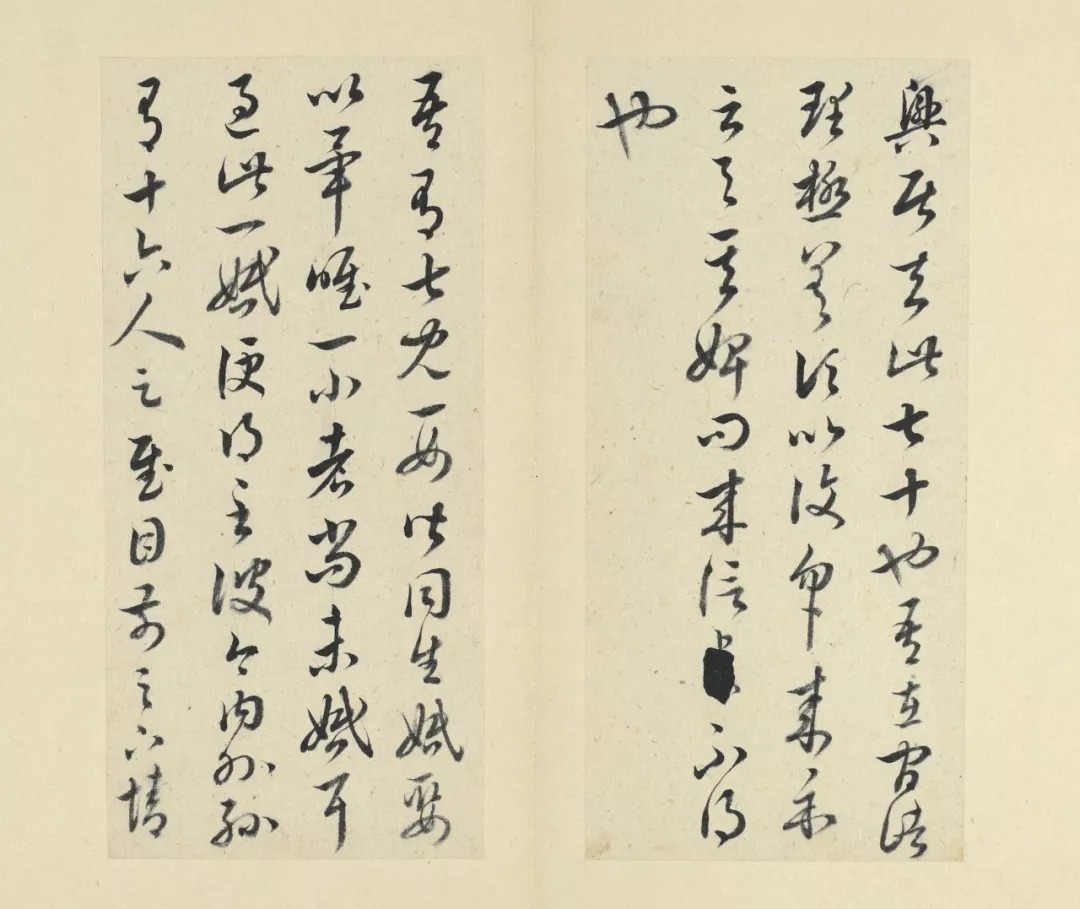 興居去此七十也吾在官諸
理極差頃比復勿勿來示
云與其婢問來信不得
也
吾有七兒一女皆同生婚娶
以畢唯一小者尚未婚耳
過此一婚便得至彼今內外孫
有十六人足慰目前足下情